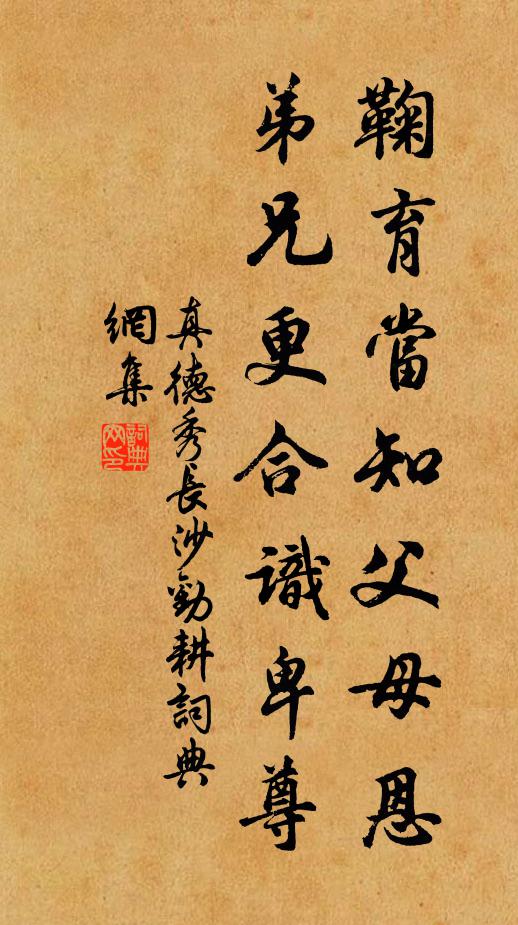 鞠育當知父母恩
弟兄更合識卑尊
真德秀長沙勸耕詞典
網集
詞典
网印